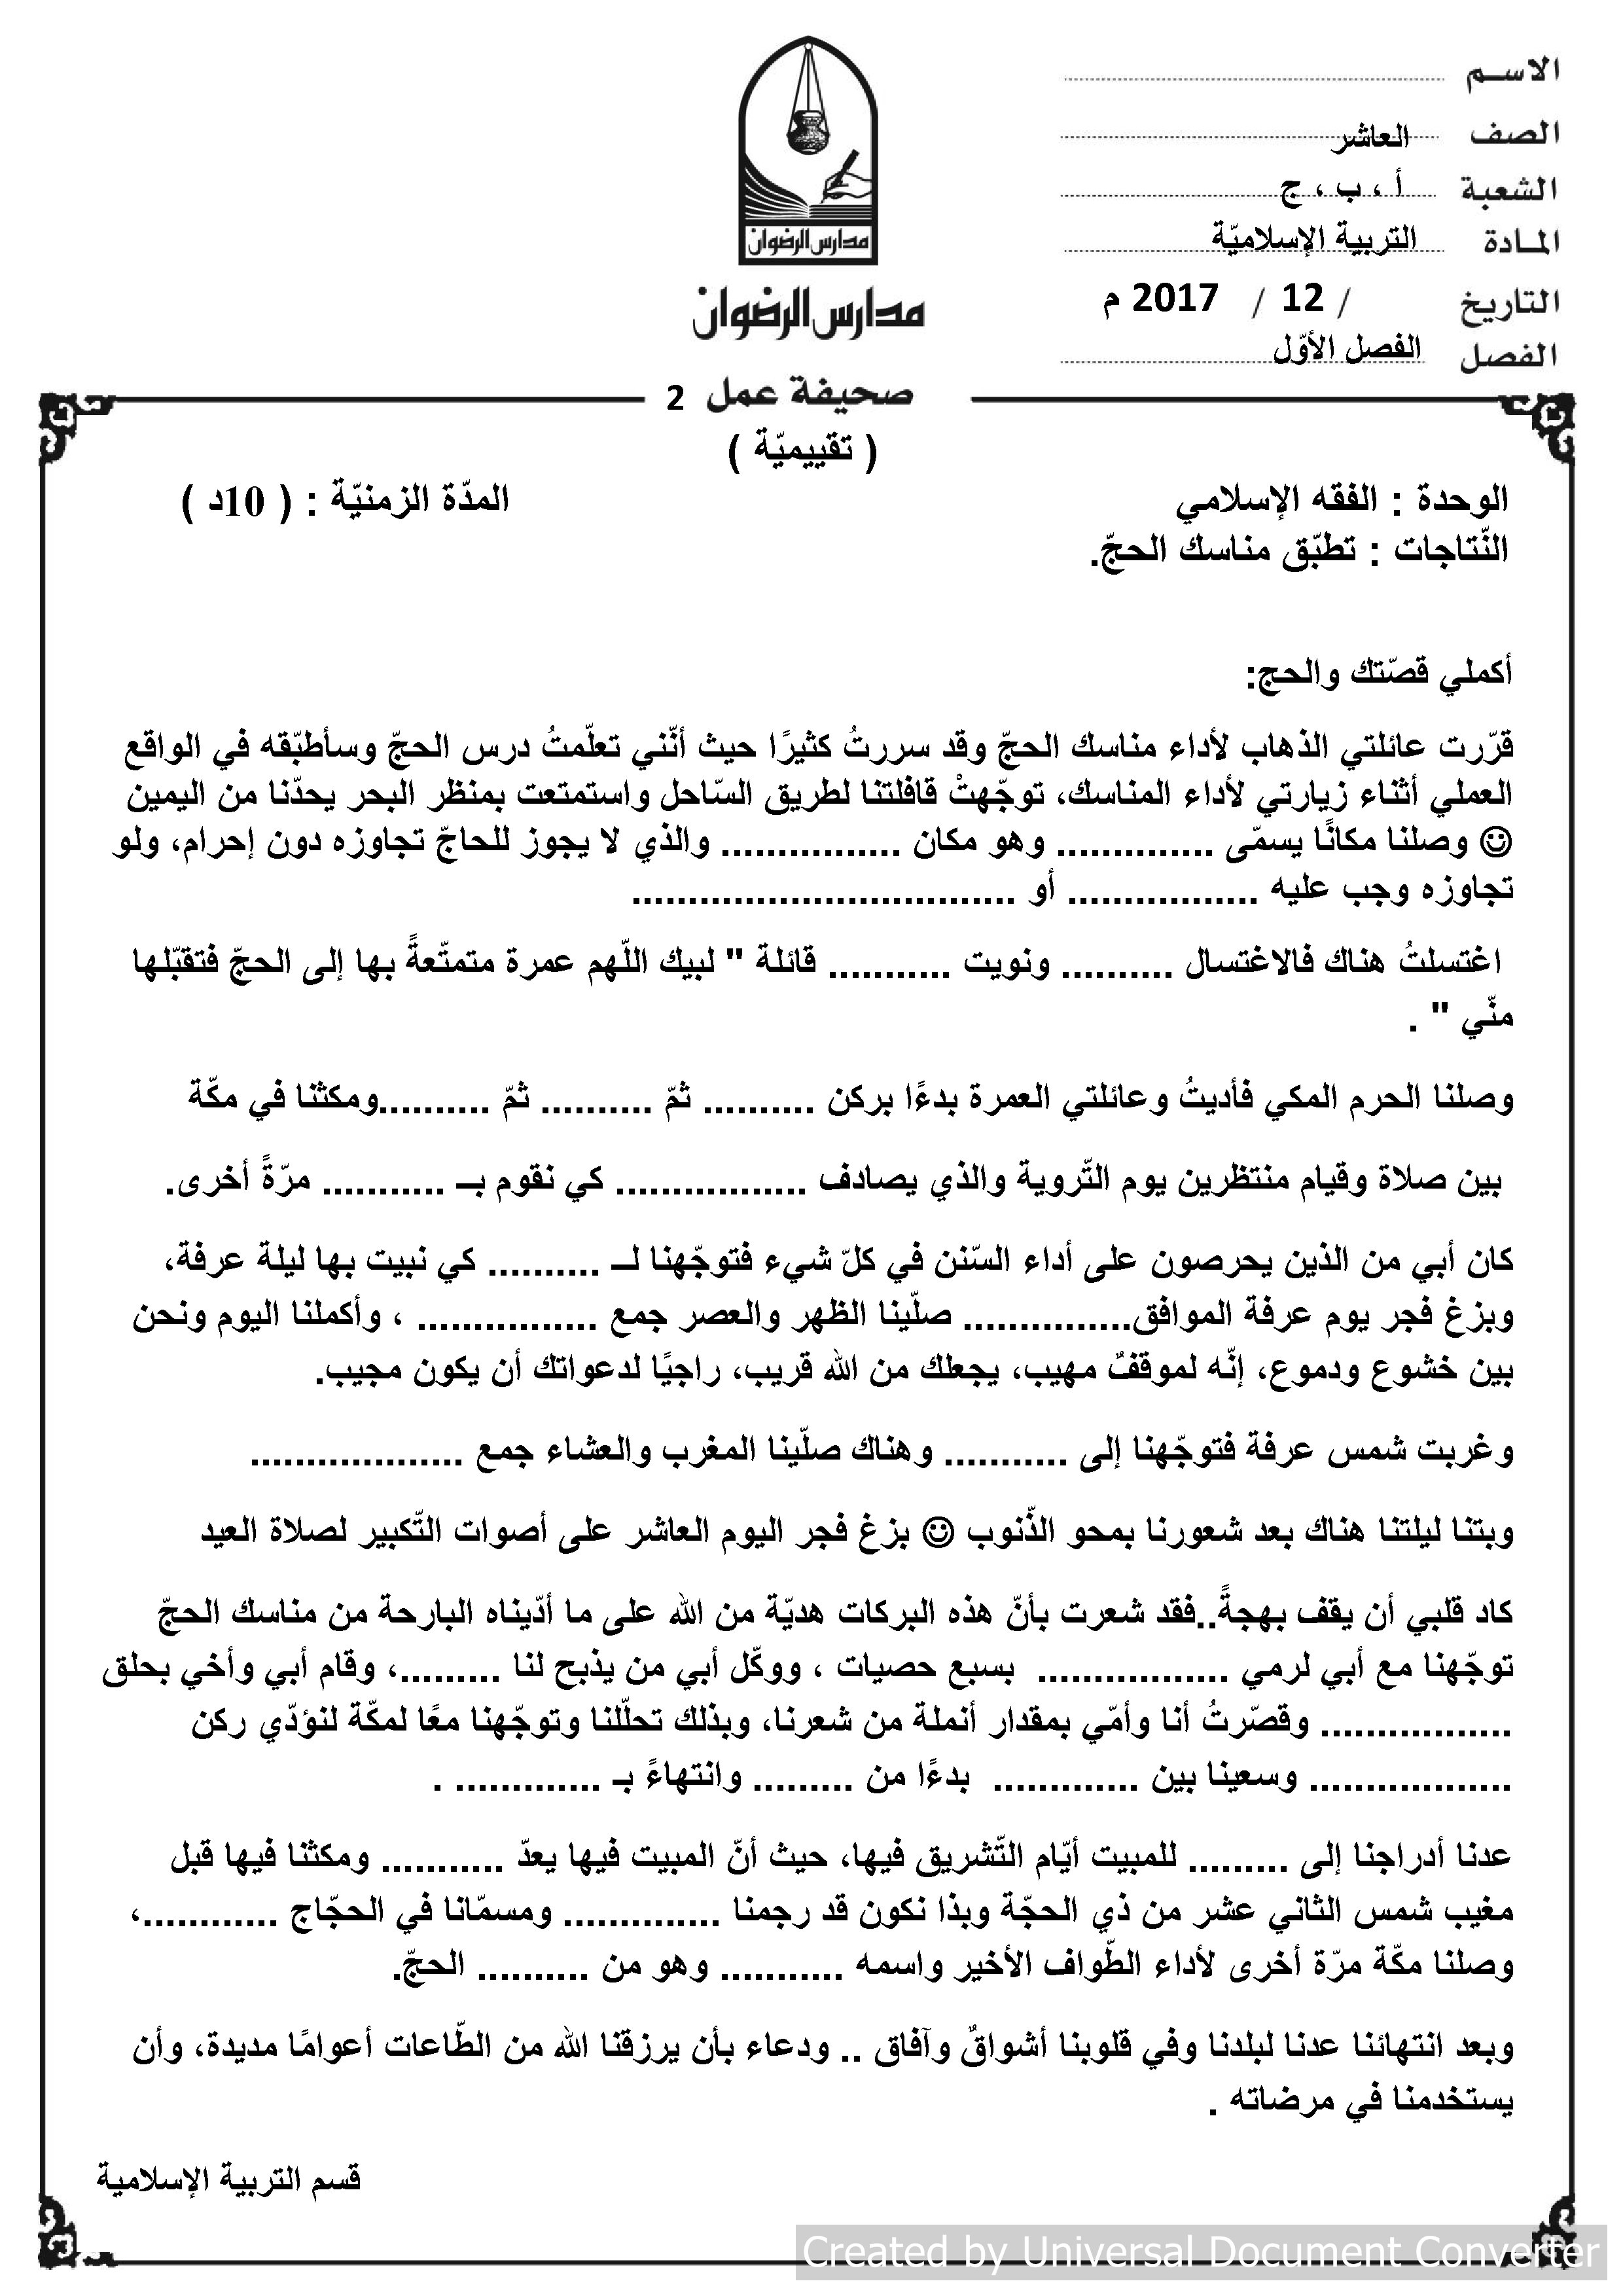 الاسـم ........................
الصف العاشر
الشعبة أ ، ب ، ج
المـادة التربية الإسلاميّة
التاريخ / 12 / 2017 م
الفصل الفصل الأوّل
مدارس الرضوان
مدارس الرضوان
صحيفة عمل 2
( تقييميّة )
الوحدة : الفقه الإسلامي المدّة الزمنيّة : ( 10د )
النّتاجات : تطبّق مناسك الحجّ.
أكملي قصّتك والحج:
قرّرت عائلتي الذهاب لأداء مناسك الحجّ وقد سررتُ كثيرًا حيث أنّني تعلّمتُ درس الحجّ وسأطبّقه في الواقع
العملي أثناء زيارتي لأداء المناسك، توجّهتْ قافلتنا لطريق السّاحل واستمتعت بمنظر البحر يحدّنا من اليمين
☺ وصلنا مكانًا يسمّى .............. وهو مكان ................ والذي لا يجوز للحاجّ تجاوزه دون إحرام، ولو
تجاوزه وجب عليه ................. أو ..................................
اغتسلتُ هناك فالاغتسال .......... ونويت ........... قائلة " لبيك اللّهم عمرة متمتّعةً بها إلى الحجّ فتقبّلها
منّي " .
وصلنا الحرم المكي فأديتُ وعائلتي العمرة بدءًا بركن .......... ثمّ .......... ثمّ ..........ومكثنا في مكّة
بين صلاة وقيام منتظرين يوم التّروية والذي يصادف ................. كي نقوم بــ ........... مرّةً أخرى.
كان أبي من الذين يحرصون على أداء السّنن في كلّ شيء فتوجّهنا لــ .......... كي نبيت بها ليلة عرفة،
وبزغ فجر يوم عرفة الموافق............... صلّينا الظهر والعصر جمع ................ ، وأكملنا اليوم ونحن
بين خشوع ودموع، إنّه لموقفٌ مهيب، يجعلك من الله قريب، راجيًا لدعواتك أن يكون مجيب.
وغربت شمس عرفة فتوجّهنا إلى ........... وهناك صلّينا المغرب والعشاء جمع ...................
وبتنا ليلتنا هناك بعد شعورنا بمحو الذّنوب ☺ بزغ فجر اليوم العاشر على أصوات التّكبير لصلاة العيد
كاد قلبي أن يقف بهجةً..فقد شعرت بأنّ هذه البركات هديّة من الله على ما أدّيناه البارحة من مناسك الحجّ
توجّهنا مع أبي لرمي ................. بسبع حصيات ، ووكّل أبي من يذبح لنا .........، وقام أبي وأخي بحلق
................. وقصّرتُ أنا وأمّي بمقدار أنملة من شعرنا، وبذلك تحلّلنا وتوجّهنا معًا لمكّة لنؤدّي ركن
.................. وسعينا بين ............. بدءًا من ......... وانتهاءً بـ ............. .
عدنا أدراجنا إلى ......... للمبيت أيّام التّشريق فيها، حيث أنّ المبيت فيها يعدّ ........... ومكثنا فيها قبل
مغيب شمس الثاني عشر من ذي الحجّة وبذا نكون قد رجمنا .............. ومسمّانا في الحجّاج ............،
وصلنا مكّة مرّة أخرى لأداء الطّواف الأخير واسمه ........... وهو من .......... الحجّ.
وبعد انتهائنا عدنا لبلدنا وفي قلوبنا أشواقٌ وآفاق .. ودعاء بأن يرزقنا الله من الطّاعات أعوامًا مديدة، وأن
يستخدمنا في مرضاته .
قسم التربية الإسلامية
Created by Universal Document Converter